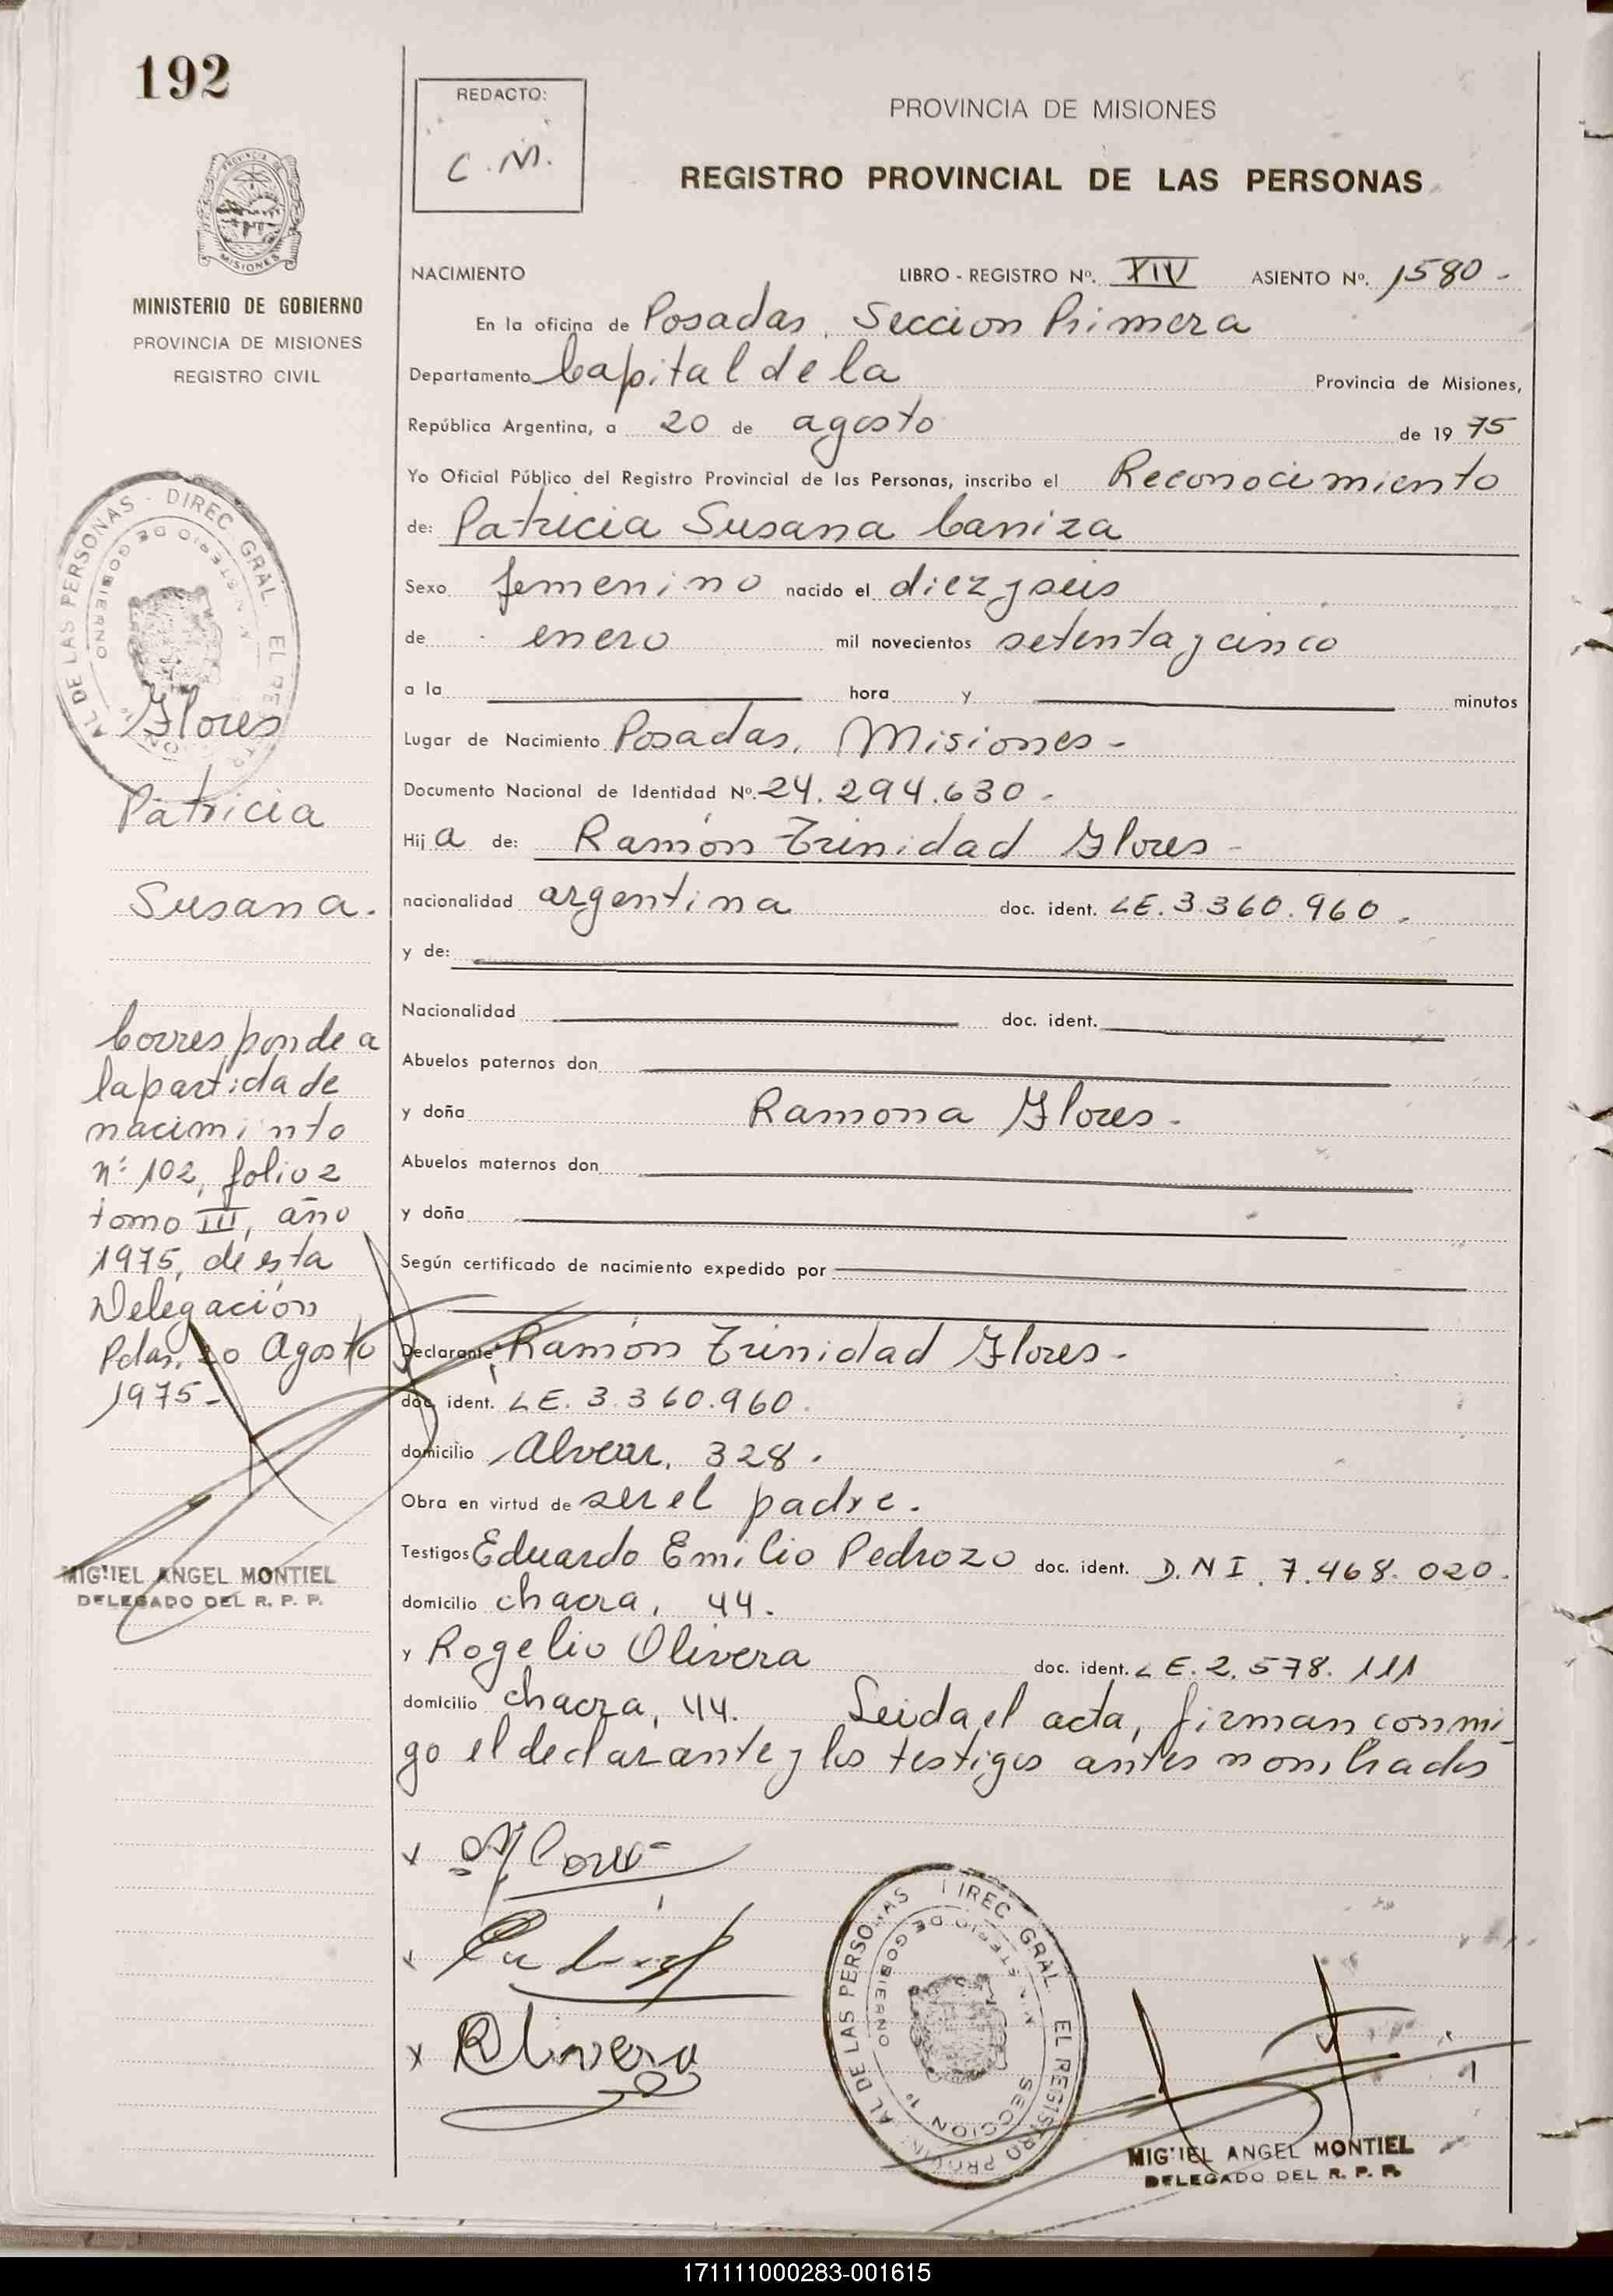 192
REDACTO:
C.M.
PROVINCIA DE MISIONES
REGISTRO PROVINCIAL DE LAS PERSONAS
PROVINCIA DE
MISIONES
MINISTERIO DE GOBIERNO
PROVINCIA DE MISIONES
REGISTRO CIVIL
NACIMIENTO LIBRO - REGISTRO Nº. XIV ASIENTO Nº. 1580 -
En la oficina de Posadas, Seccion Primera
Departamento Capital de la Provincia de Misiones,
República Argentina, a 20 de agosto de 1975
Yo Oficial Público del Registro Provincial de las Personas, inscribo el Reconocimiento
de: Patricia Susana Caniza
Sexo femenino nacido el diez y seis
de enero mil novecientos setenta y cinco
a la hora y minutos
Lugar de Nacimiento Posadas, Misiones -
Documento Nacional de Identidad Nº. 24.294.630 -
Hija de: Ramón Trinidad Flores -
nacionalidad argentina doc. ident. LE. 3.360.960.
y de:
Nacionalidad doc. ident.
Abuelos paternos don
y doña Ramona Flores -
Abuelos maternos don
y doña
Según certificado de nacimiento expedido por
Declarante: Ramón Trinidad Flores -
doc. ident. LE. 3.360.960.
domicilio Alvear, 328.
Obra en virtud de ser el padre.
Testigos Eduardo Emilio Pedrozo doc. ident. D.N I. 7.468.020.
domicilio chacra, 44.
y Rogelio Olivera doc. ident. LE. 2.578.111
domicilio chacra, 44. Leida el acta, firman conmi_
go el declarante y los testigos antes nombrados
Flores
Patricia
Susana.
Corresponde a
la partida de
nacimiento
nº 102, folio 2
tomo III, año
1975, de esta
Delegación
Pdas. 20 Agosto
1975 -
MIGUEL ANGEL MONTIEL
DELEGADO DEL R. P. P.
DIREC. GRAL. EL REGISTRO PROVINCIAL DE LAS PERSONAS
MINISTERIO DE GOBIERNO
SECCION 1º
x
x
x Olivera
MIGUEL ANGEL MONTIEL
DELEGADO DEL R. P. P.
171111000283-001615